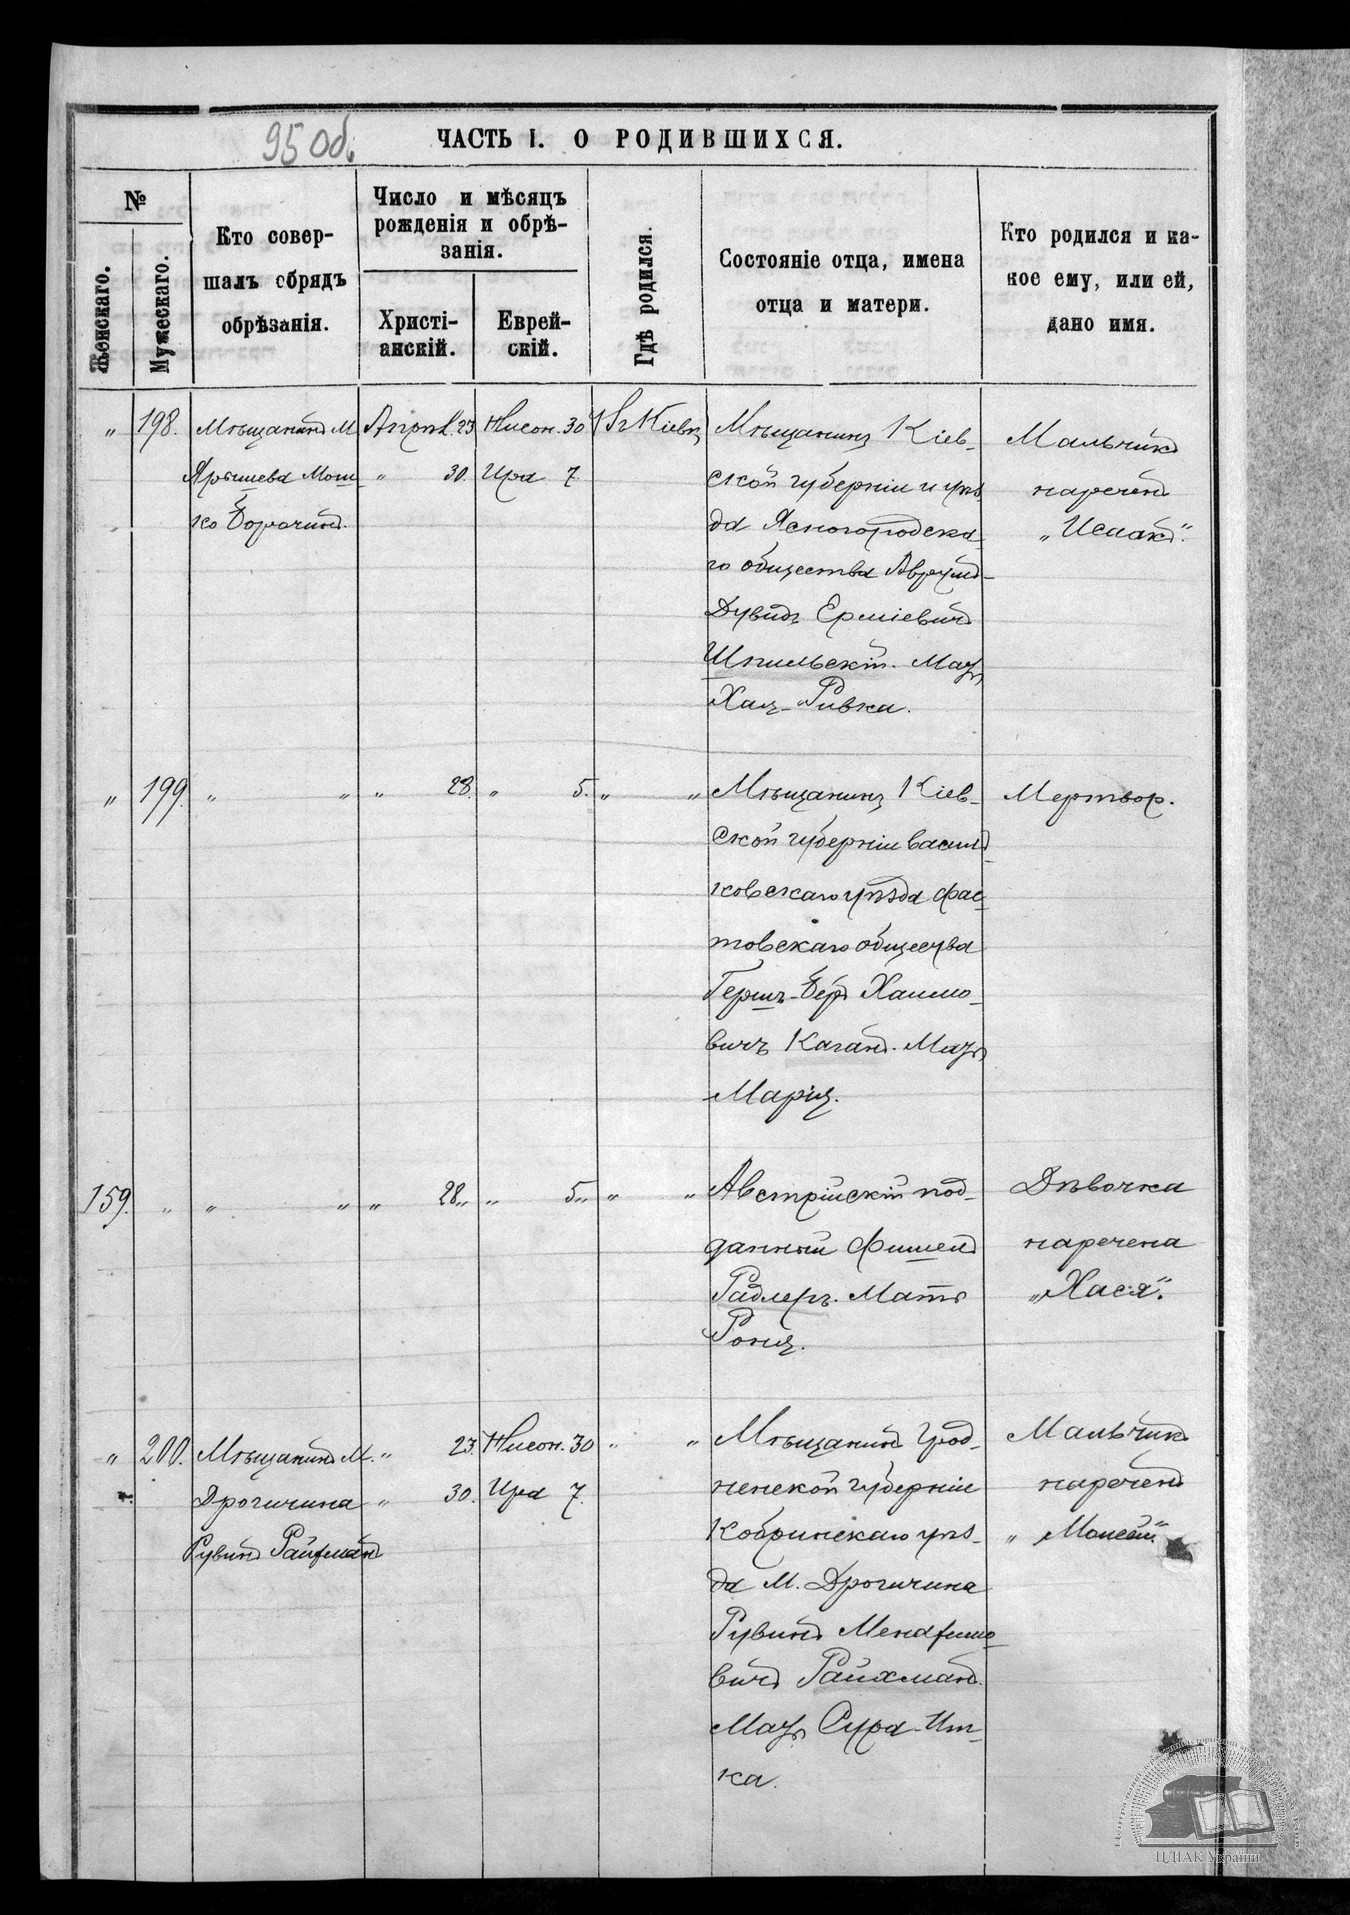 95 Об.
ЧАСТЬ I. О РОДИВШИХСЯ.
№
Женскаго.
Мужескаго.
Кто совер-
шалъ обрядъ
обрѣзанія.
Число и мѣсяцъ
рожденія и обрѣ-
занія.
Христі-
анскій.
Еврей-
скій.
Гдѣ родился.
Состояніе отца, имена
отца и матери.
Кто родился и ка-
кое ему, или ей,
дано имя.
„ 198.
Мѣщанинъ М.
Ярышева Мош-
ко Борочинъ.
Апрѣл. 23
„ 30.
Нисон. 30
Ира 7.
Въ г. Кіевѣ
Мѣщанинъ Кіев-
ской губерніи и уѣз
да Ясногородска-
го общества Аврумъ-
Дувидъ Ерміевичъ
Шпильскій. Мать
Хая-Ривка.
Мальчикъ
нареченъ
„Исаакъ“.
„ 199.
„ „
„ 28.
„ 5.
„ „
Мѣщанинъ Кіев-
ской губерніи Василь-
ковскаго уѣзда Фас-
товскаго общества
Гершъ-Беръ Хаимо-
вичъ Каганъ. Мать
Марія.
Мертвор.
159. „
„ „
„ 28„
„ 5„
„ „
Австрійскій под-
данный Фишель
Радлеръ. Мать
Роня.
Дѣвочка
наречена
„Хася“.
„ 200.
Мѣщанинъ М.
Дрогичина
Рувинъ Райфманъ
„ 23.
„ 30.
Нисон. 30
Ира 7.
„ „
Мѣщанинъ Грод-
ненской губерніи
Кобринскаго уѣз-
да М. Дрогичина
Рувинъ Менахимо-
вичъ Райхманъ.
Мать Сура-Ит-
ка.
Мальчикъ
нареченъ
„ Моисей“
ЦДІАК України